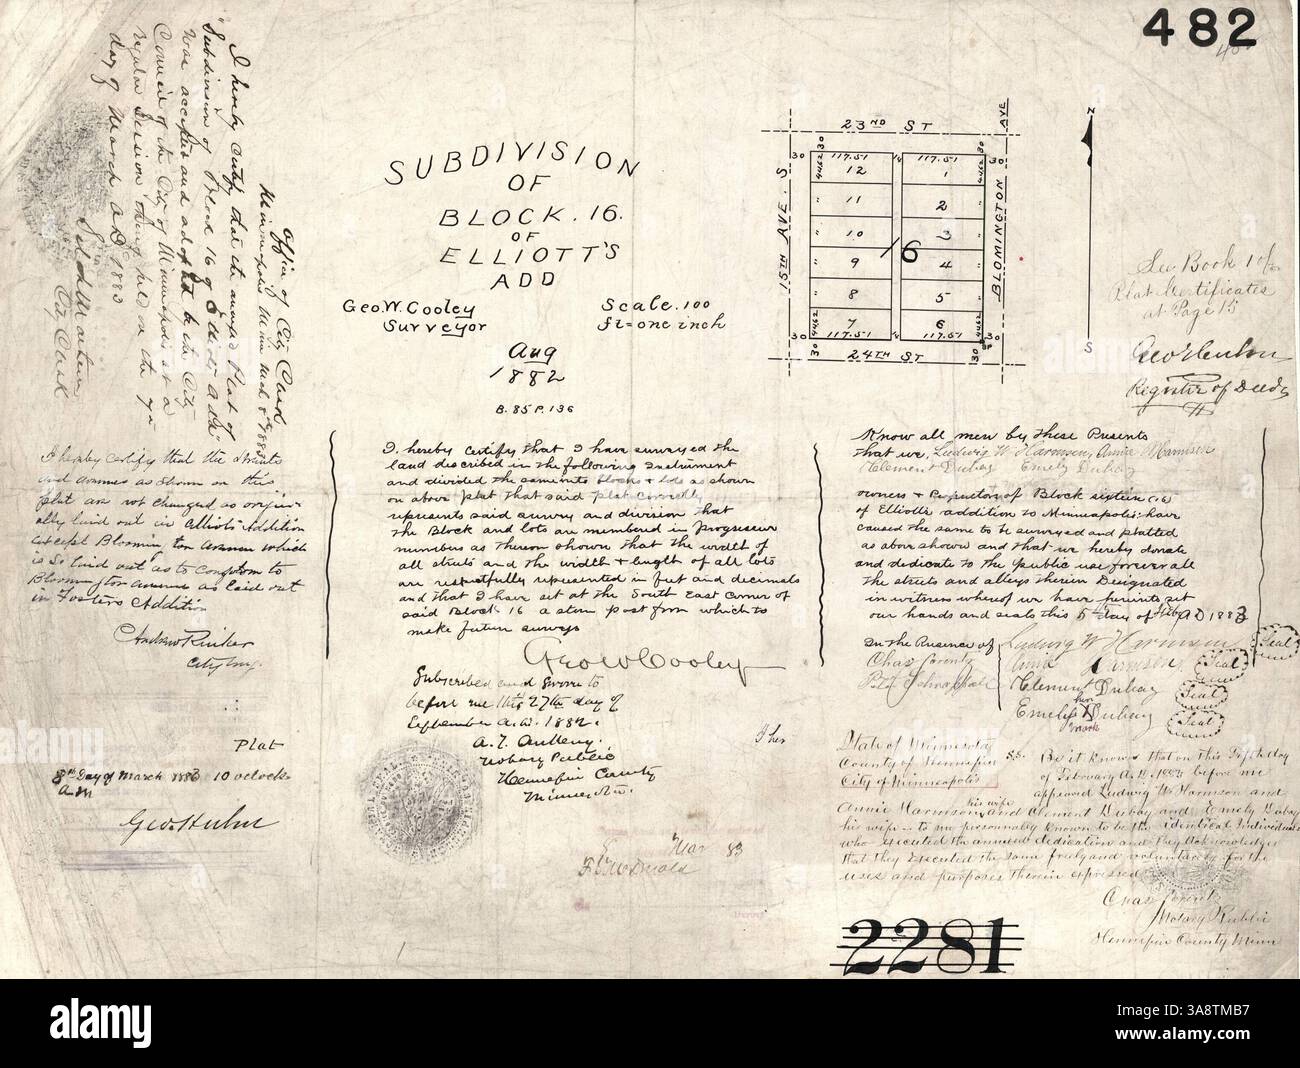 482
SUBDIVISION
OF
BLOCK. 16.
OF
ELLIOTT'S
ADD
Geo. W. Cooley
Surveyor
Scale. 100
ft = one inch
Aug
1882
B. 85 P. 136
23RD ST
AVE
30 30
30 117.51 14 117.51 30
4462 12 1 4462
" 11 2 "
" 10 3 "
16
" 9 4 "
" 8 5 "
4462 7 6 4462
30 117.51 117.51 30
30 30
24TH ST
15TH AVE. S
BLOMINGTON
N
S
See Book 1 of
Plat Certificates
at Page 15
Register of Deeds
Office of City Clerk
Minneapolis Minn Mch 8th 1883
I hereby certify that the annexed Plat of
"Subdivision of Block 16 of Elliotts Add"
was accepted and adopted by the City
Council of the City of Minneapolis at a
regular Session thereof held on the 7th
day of March A.D. 1883
City Clerk
I hereby certify that the streets
and avenues as shown on this
plat are not changed as origin-
ally laid out in Elliots Addition
except Bloomin ton avenue which
is so laid out as to conform to
Bloomington avenue as laid out
in Fosters Addition
Andrew Rinker
City Eng.
Plat
8th Day of March 1883 10 oclock
A.M
I hereby certify that I have surveyed the
land described in the following Instrument
and divided the same into blocks & lots as shown
on above plat that said plat correctly
represents said survey and division that
the Block and lots are numbered in Progressive
numbers as thereon shown that the width of
all streets and the width & length of all lots
are respectfully represented in feet and decimals
and that I have set at the South East corner of
said Block 16 a stone post from which to
make future surveys
Geo W Cooley
Subscribed and sworn to
before me this 27th day of
September A.D. 1882.
Notary Public
Hennepin County
Minnesota.
I her
Mar 83
Know all men by these Presents
that we, Ludwig W Harmsen, Annie Harmsen
Clement Dubay Emely Dubay
owners & Proprietors of Block sixteen (16)
of Elliotts addition to Minneapolis: have
caused the same to be surveyed and platted
as above shown and that we hereby donate
and dedicate to the public use forever all
the streets and alleys therein Designated
in witness whereof we have herunto set
our hands and seals this 5th day of Feby A D 1883
In the Presence of
Ludwig W Harmsen Seal
Harmsen Seal
Clement Dubay Seal
her
Emely X Dubay Seal
mark
State of Minnesota
County of Hennepin
City of Minneapolis
SS. Be it known that on this Fifth day
of February A.D. 1883 before me
appeared Ludwig W Harmson and
his wife
Annie Harmson and Clement Dubay and Emely Dubay
his wife to me personally known to be the identical Individuals
who executed the annexed dedication and they acknowledged
that they executed the same freely and voluntarily for the
uses and purposes therein expressed
Notary Public
Hennepin County Minn
2281
alamy
Image ID: 3A8TMB7
www.alamy.com